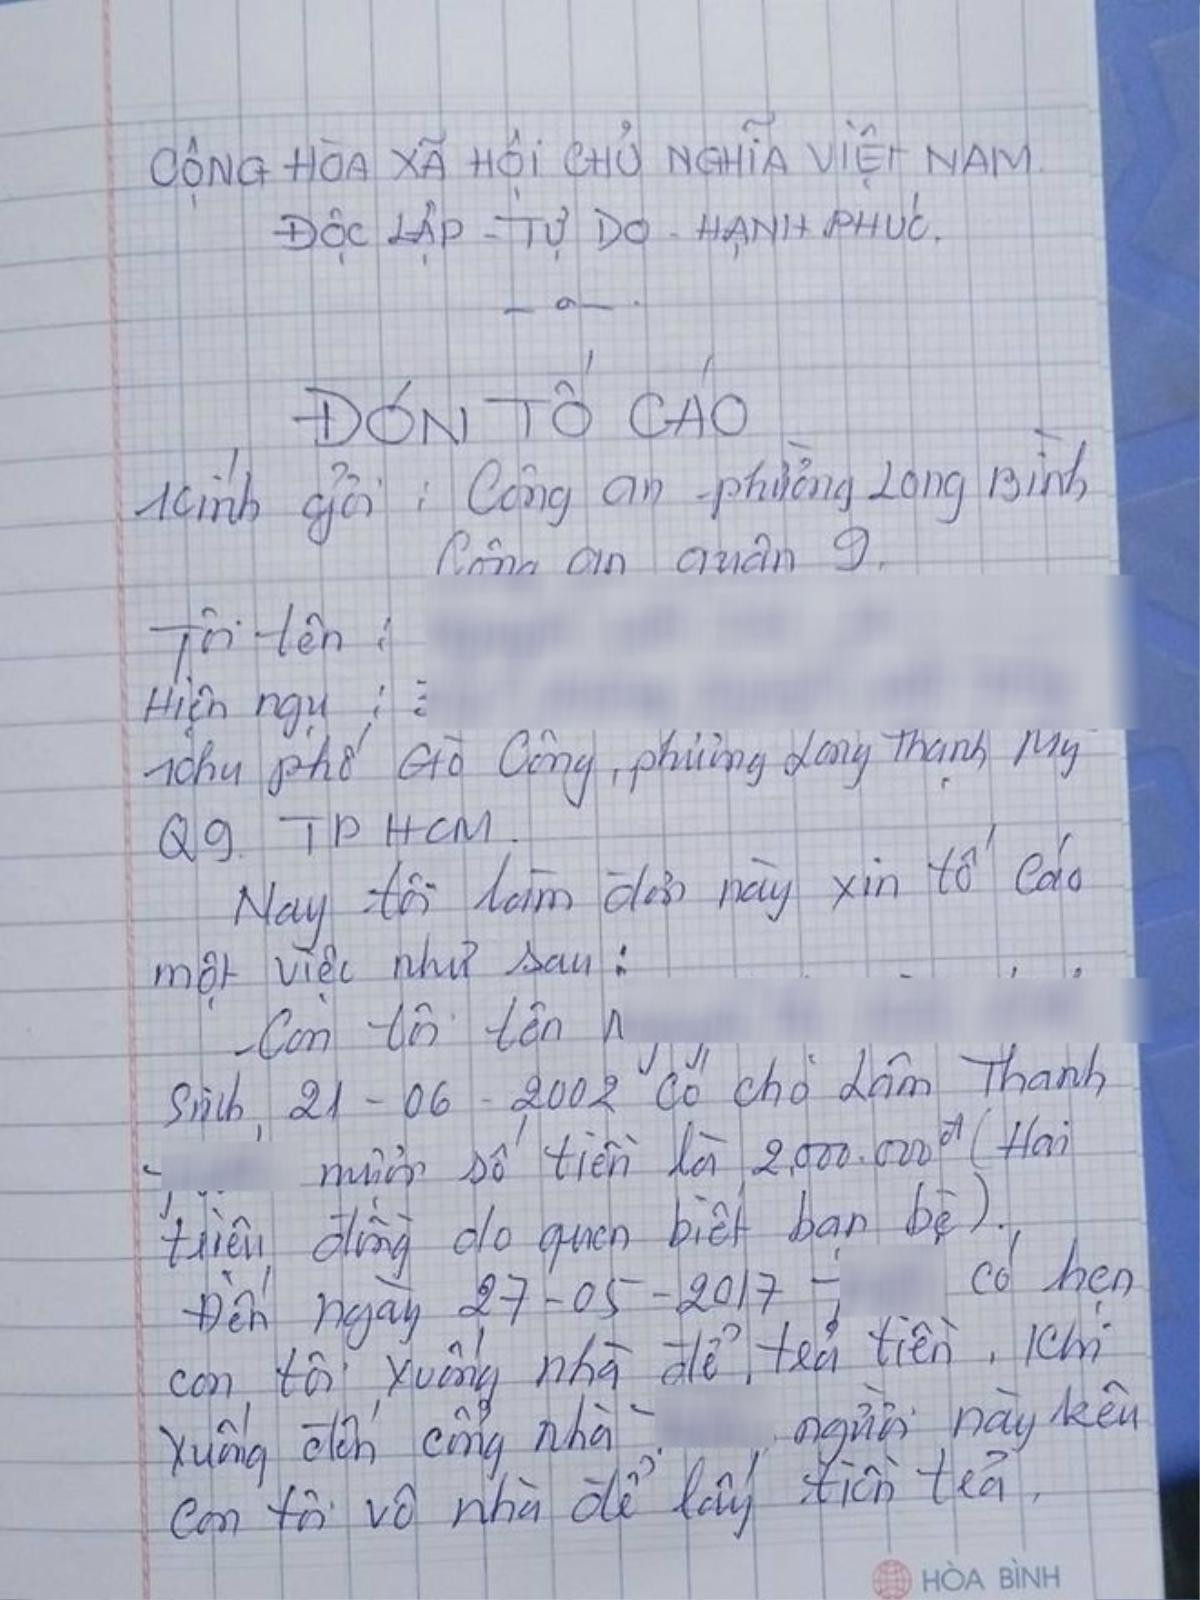 CỘNG HÒA XÃ HỘI CHỦ NGHĨA VIỆT NAM.
ĐỘC LẬP - TỰ DO - HẠNH PHÚC.
ĐÓN TỐ CÁO
Kính gởi : Công an phường Long Bình
Công an quận 9.
Tôi tên :
Hiện ngụ :
khu phố Gò Công, phường Long Thạnh Mỹ
Q9. TP HCM.
Nay tôi làm đơn này xin tố cáo
một việc như sau :
Con tôi tên N
Sinh 21 - 06 - 2002 Có cho Lâm Thanh
mượn số tiền là 2.000.000đ (Hai
triệu đồng do quen biết bạn bè).
Đến ngày 27-05-2017 có hẹn
con tôi xuống nhà để trả tiền. Khi
xuống đến cổng nhà người này kêu
con tôi vô nhà để lấy tiền trả.
HÒA BÌNH